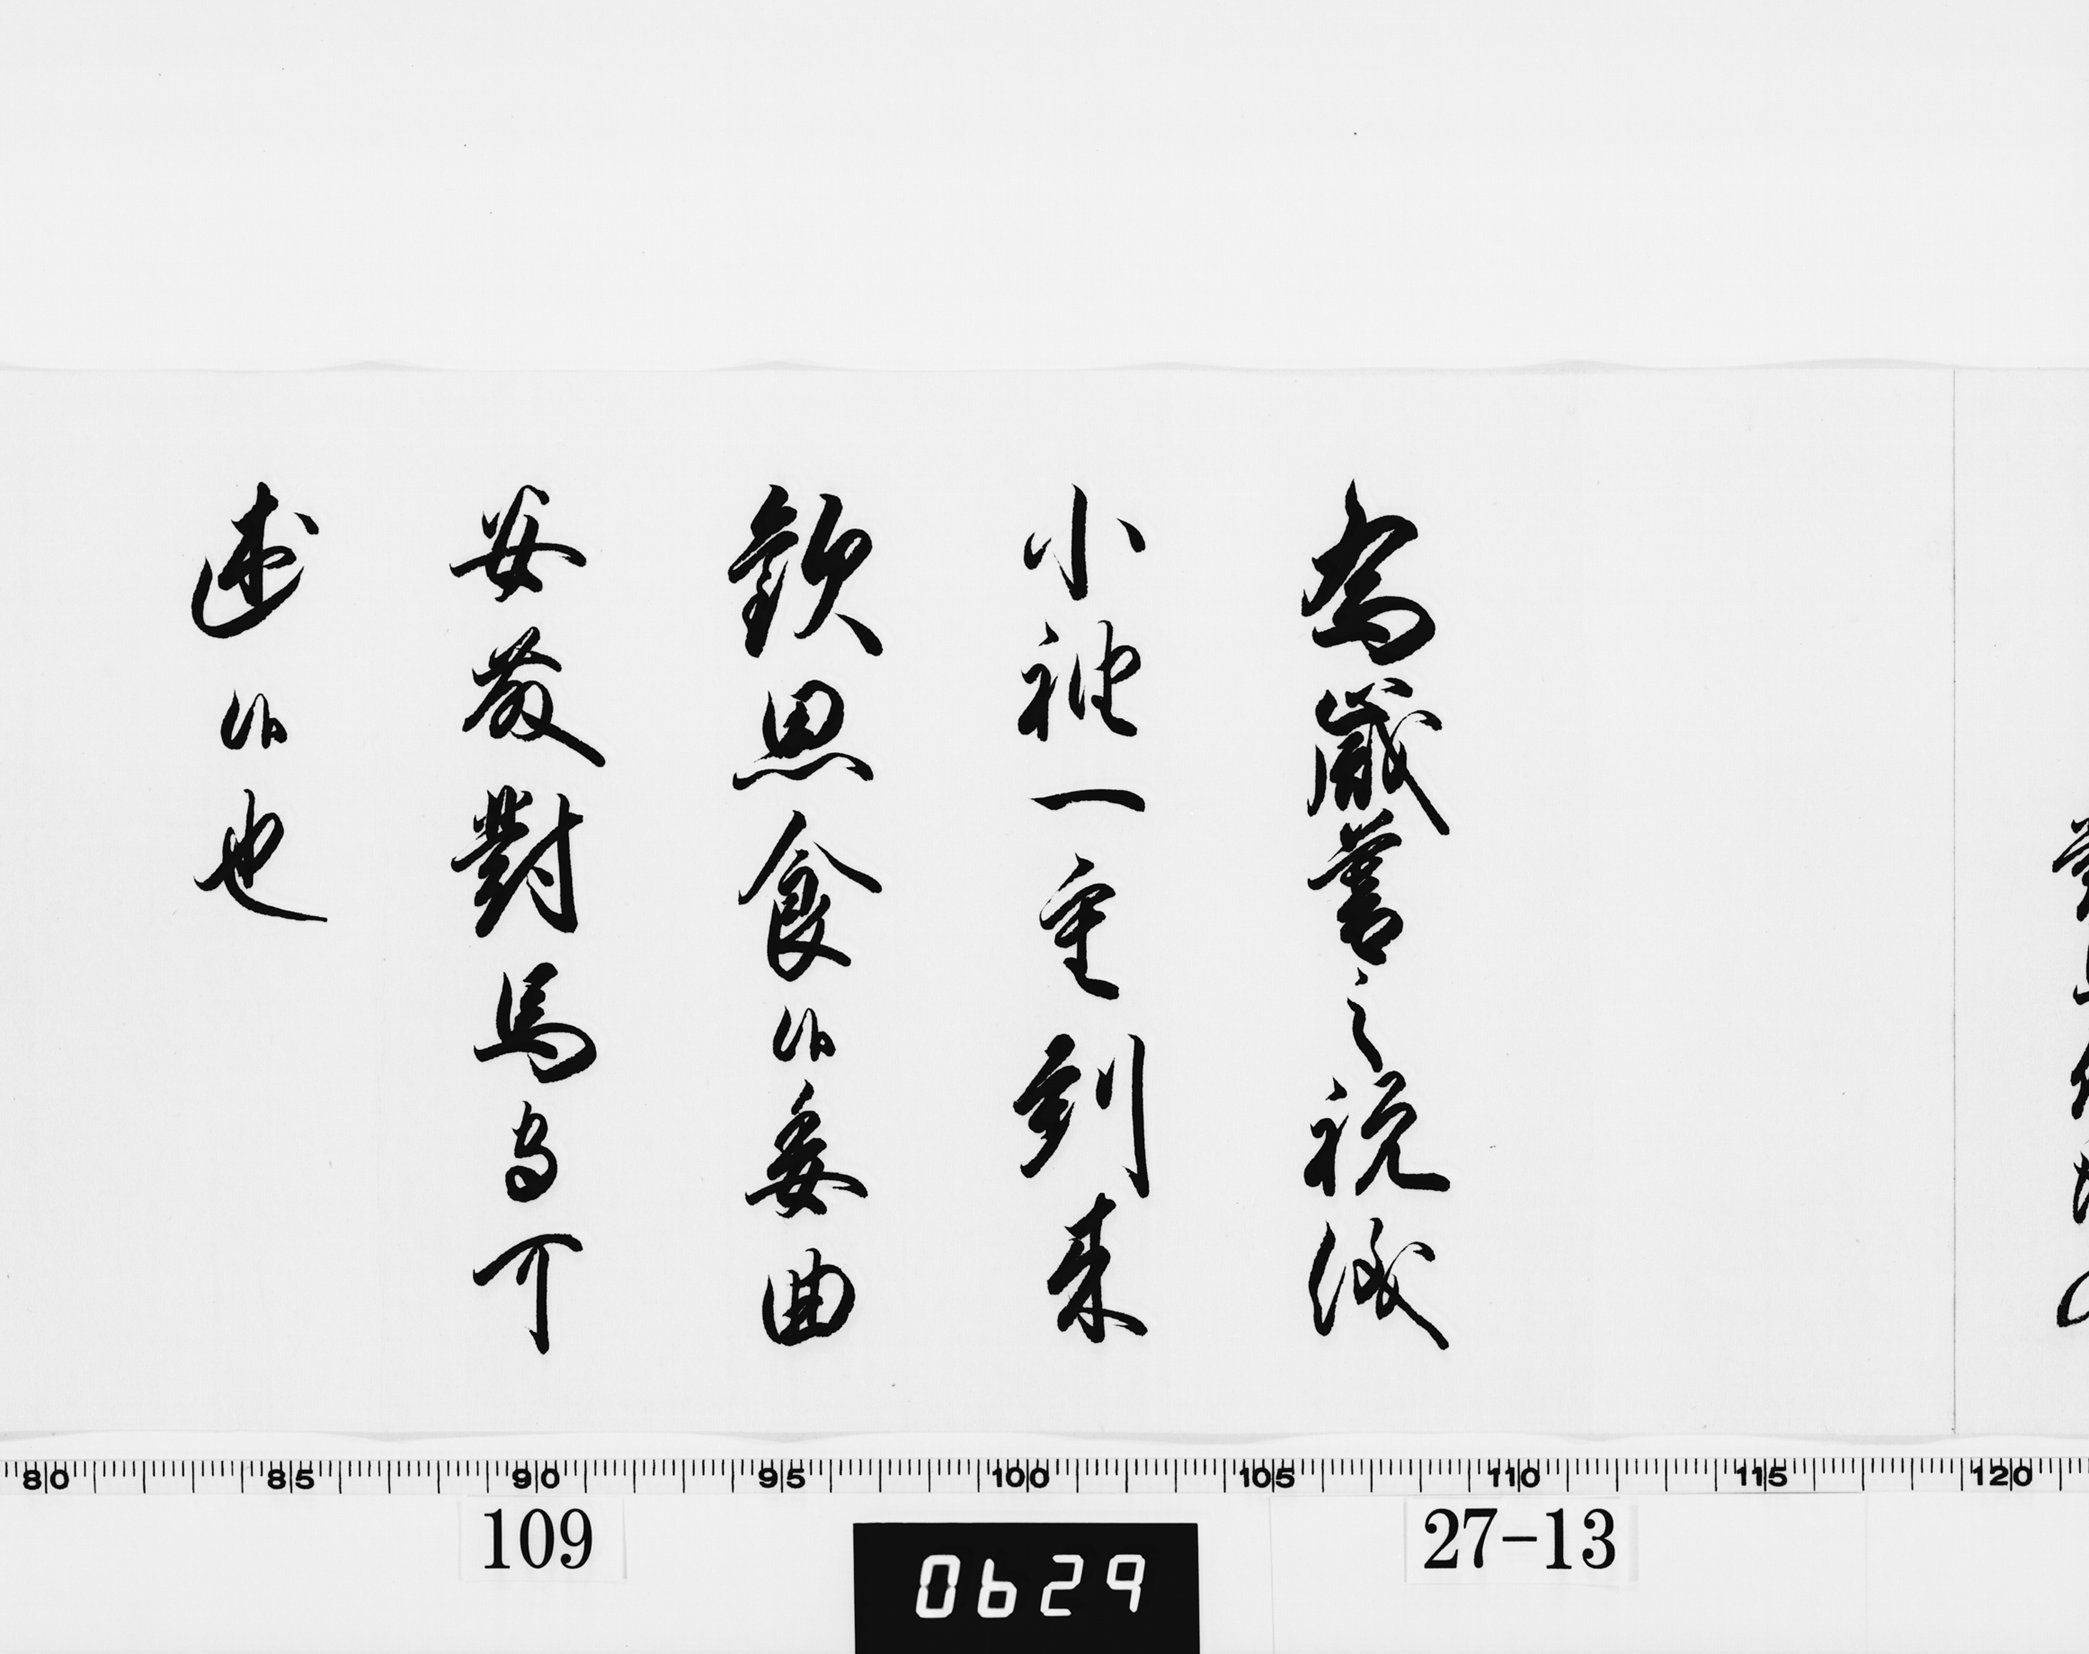 為歳暮之祝儀
小袖一重到来
歓思食候委曲
安藤對馬守可
述候也
80 85 90 95 100 105 110 115 120
109
0629
27-13